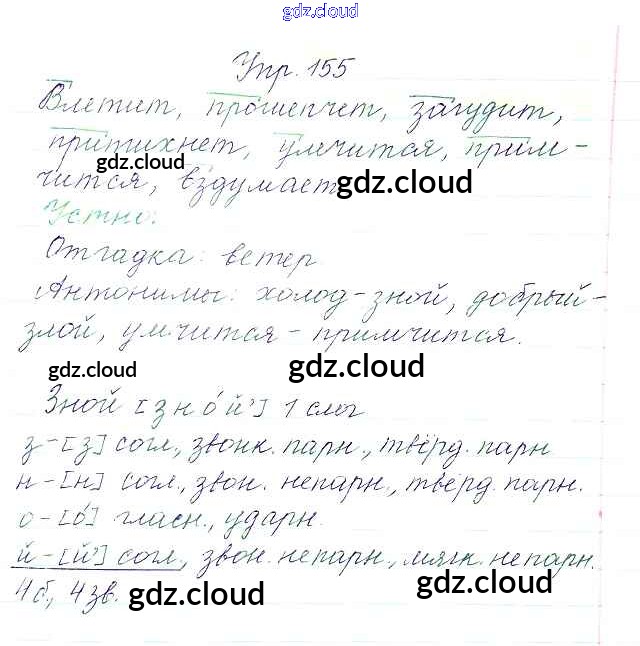 gdz.cloud
Упр. 155
Влетит, прошепчет, загудит,
притихнет, улечится, прим-
gdz.cloud
чится, вздумает
gdz.cloud
Устно:
Отгадка: ветер
Антонимы: холод-зной, добрый-
злой, умчится-примчится.
gdz.cloud
gdz.cloud
Зной [зно́й'] 1 слог
з-[з] согл., звонк. парн., твёрд. парн
н-[н] согл., звон. непарн., твёрд. парн.
о-[о́] гласн., ударн.
й-[й'] согл., звон. непарн., мягк. непарн.
4б., 4 зв.
gdz.cloud
gdz.cloud